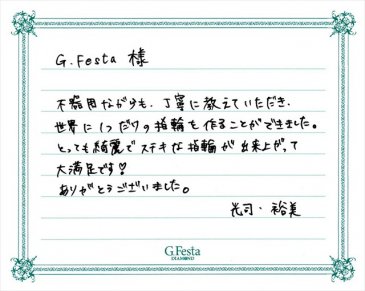 G.Festa 様
不器用ながらも、丁寧に教えていただき、
世界に1つだけの指輪を作ることができました。
とっても綺麗でステキな指輪が出来上がって
大満足です♡
ありがとうございました。
光司・裕美
G.Festa
DIAMOND